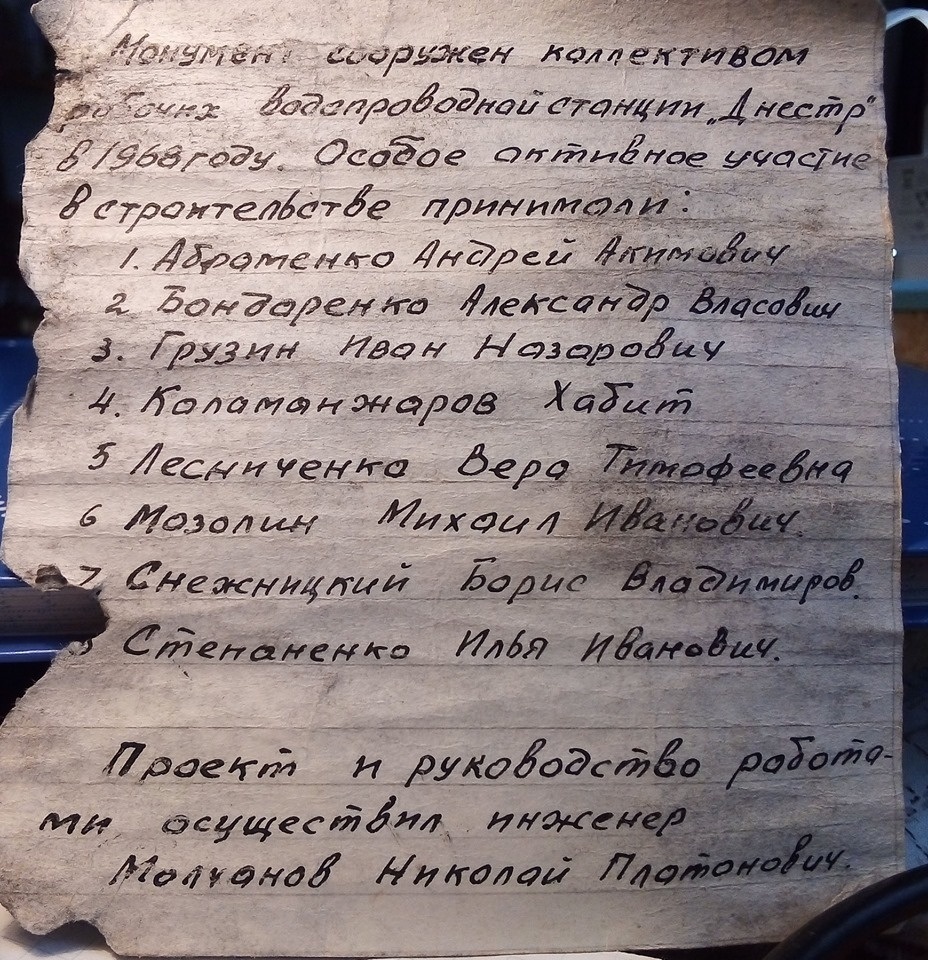 Монумент сооружен коллективом
рабочих водопроводной станции „Днестр"
в 1968 году. Особое активное участие
в строительстве принимали:
1. Абраменко Андрей Акимович
2 Бондаренко Александр Власович
3. Грузин Иван Назарович
4. Каламанжаров Хабит
5 Лесниченко Вера Тимофеевна
6 Мозолин Михаил Иванович.
7. Снежницкий Борис Владимиров.
8 Степаненко Илья Иванович.
Проект и руководство работа-
ми осуществил инженер
Молчанов Николай Платонович.